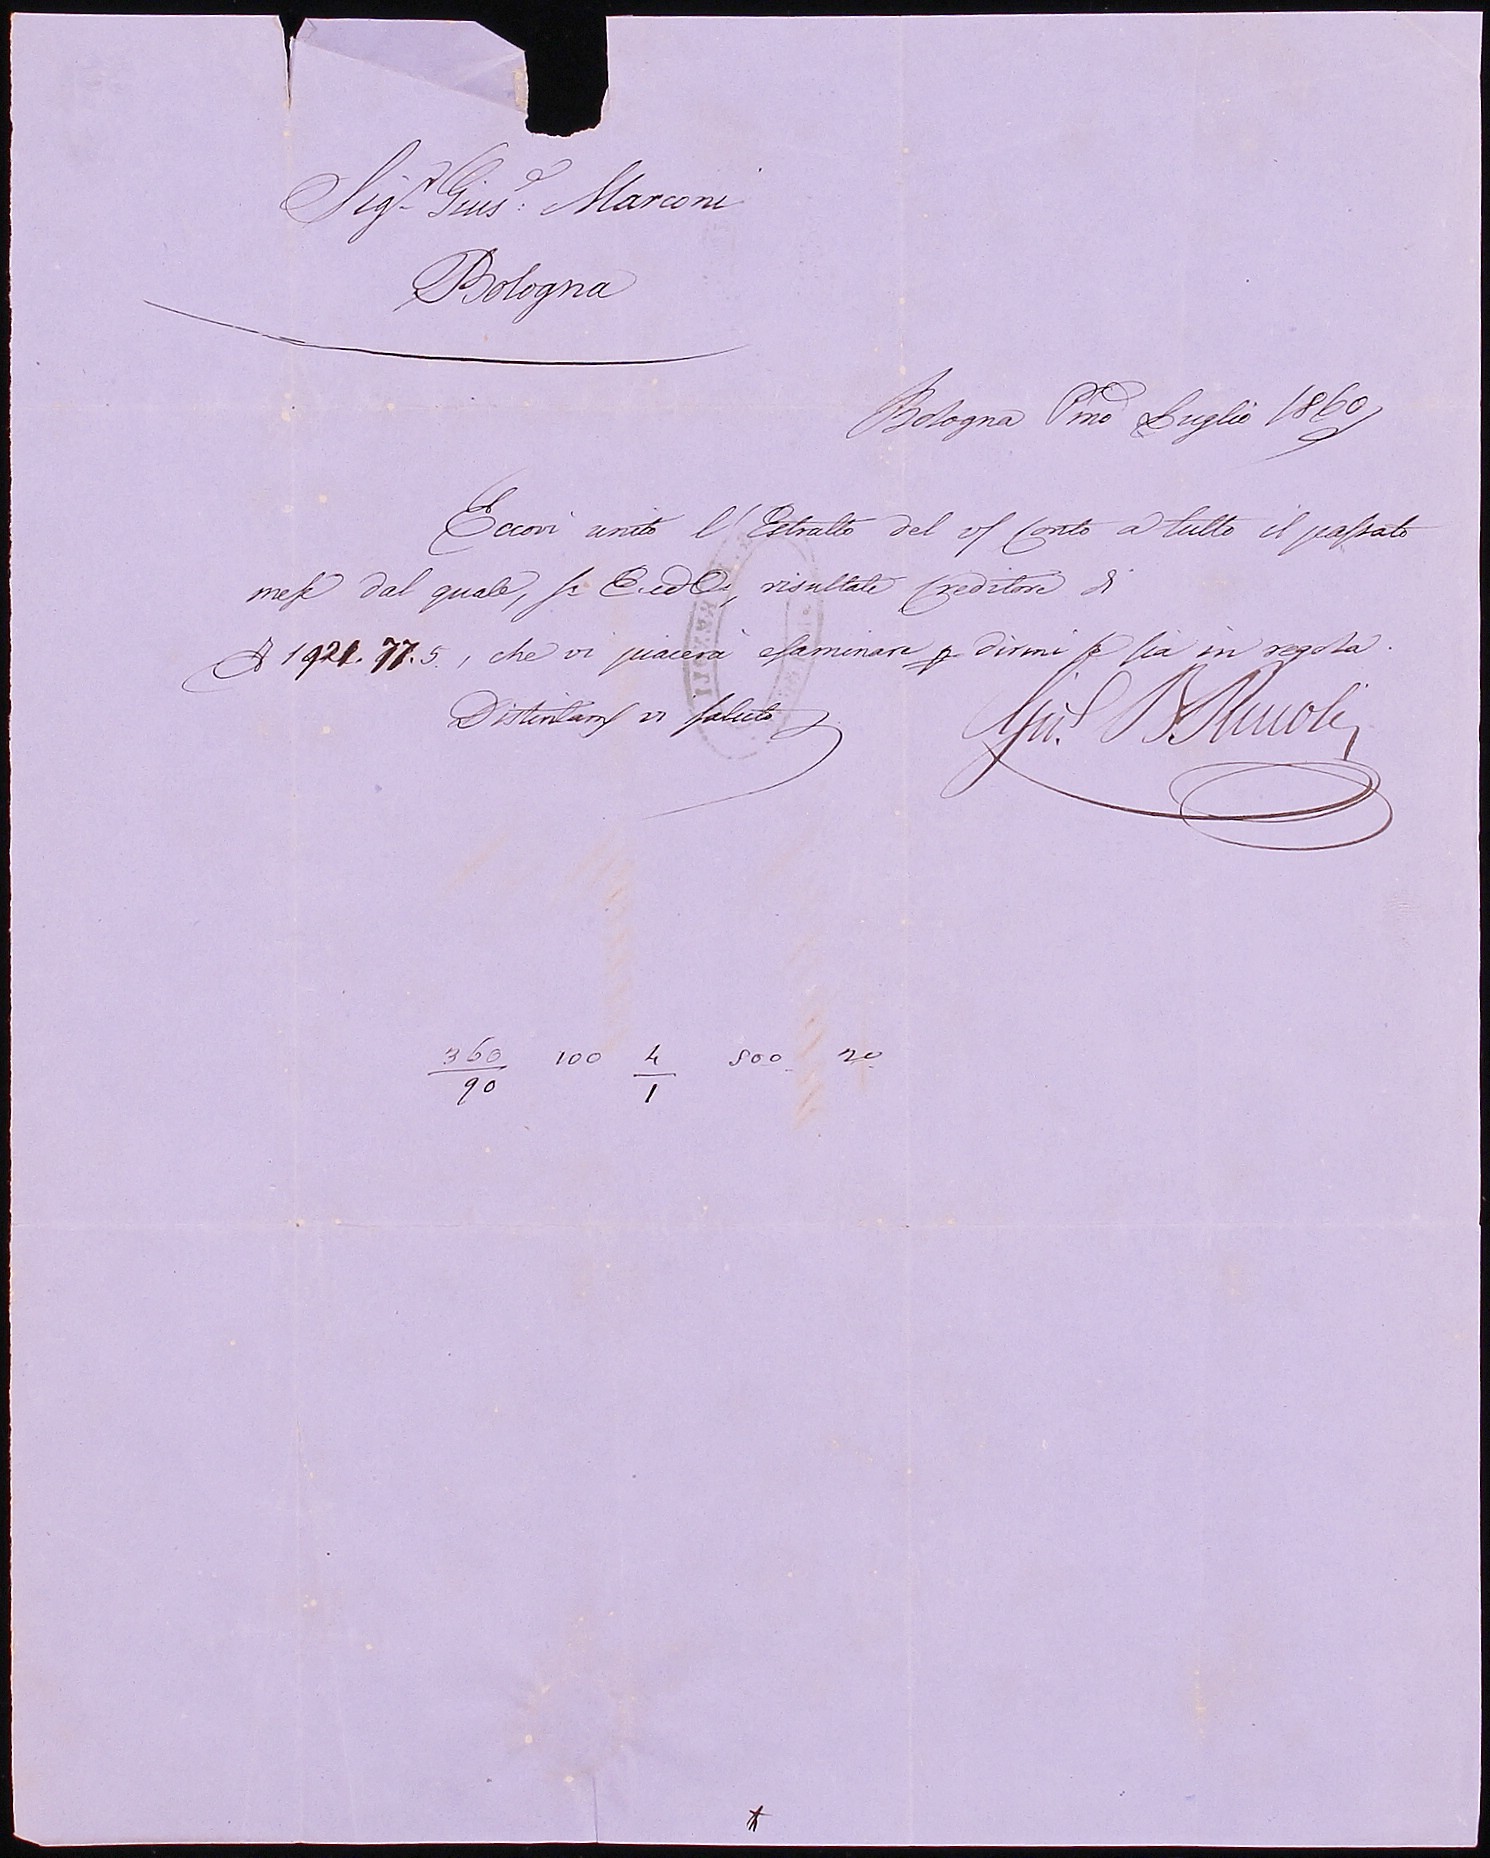 Sig.r Gius.e Marconi
Bologna
Bologna Pmo Luglio 1860
Eccovi unito l'Estratto del vs Conto a tutto il passato
mese dal quale, S. E. ed O., risultate Creditore di
1921.77.5., che vi piacerà esaminare p dirmi se sia in regola.
Distintam vi saluto
Gio. B.
360 100 4 500 20
90 1